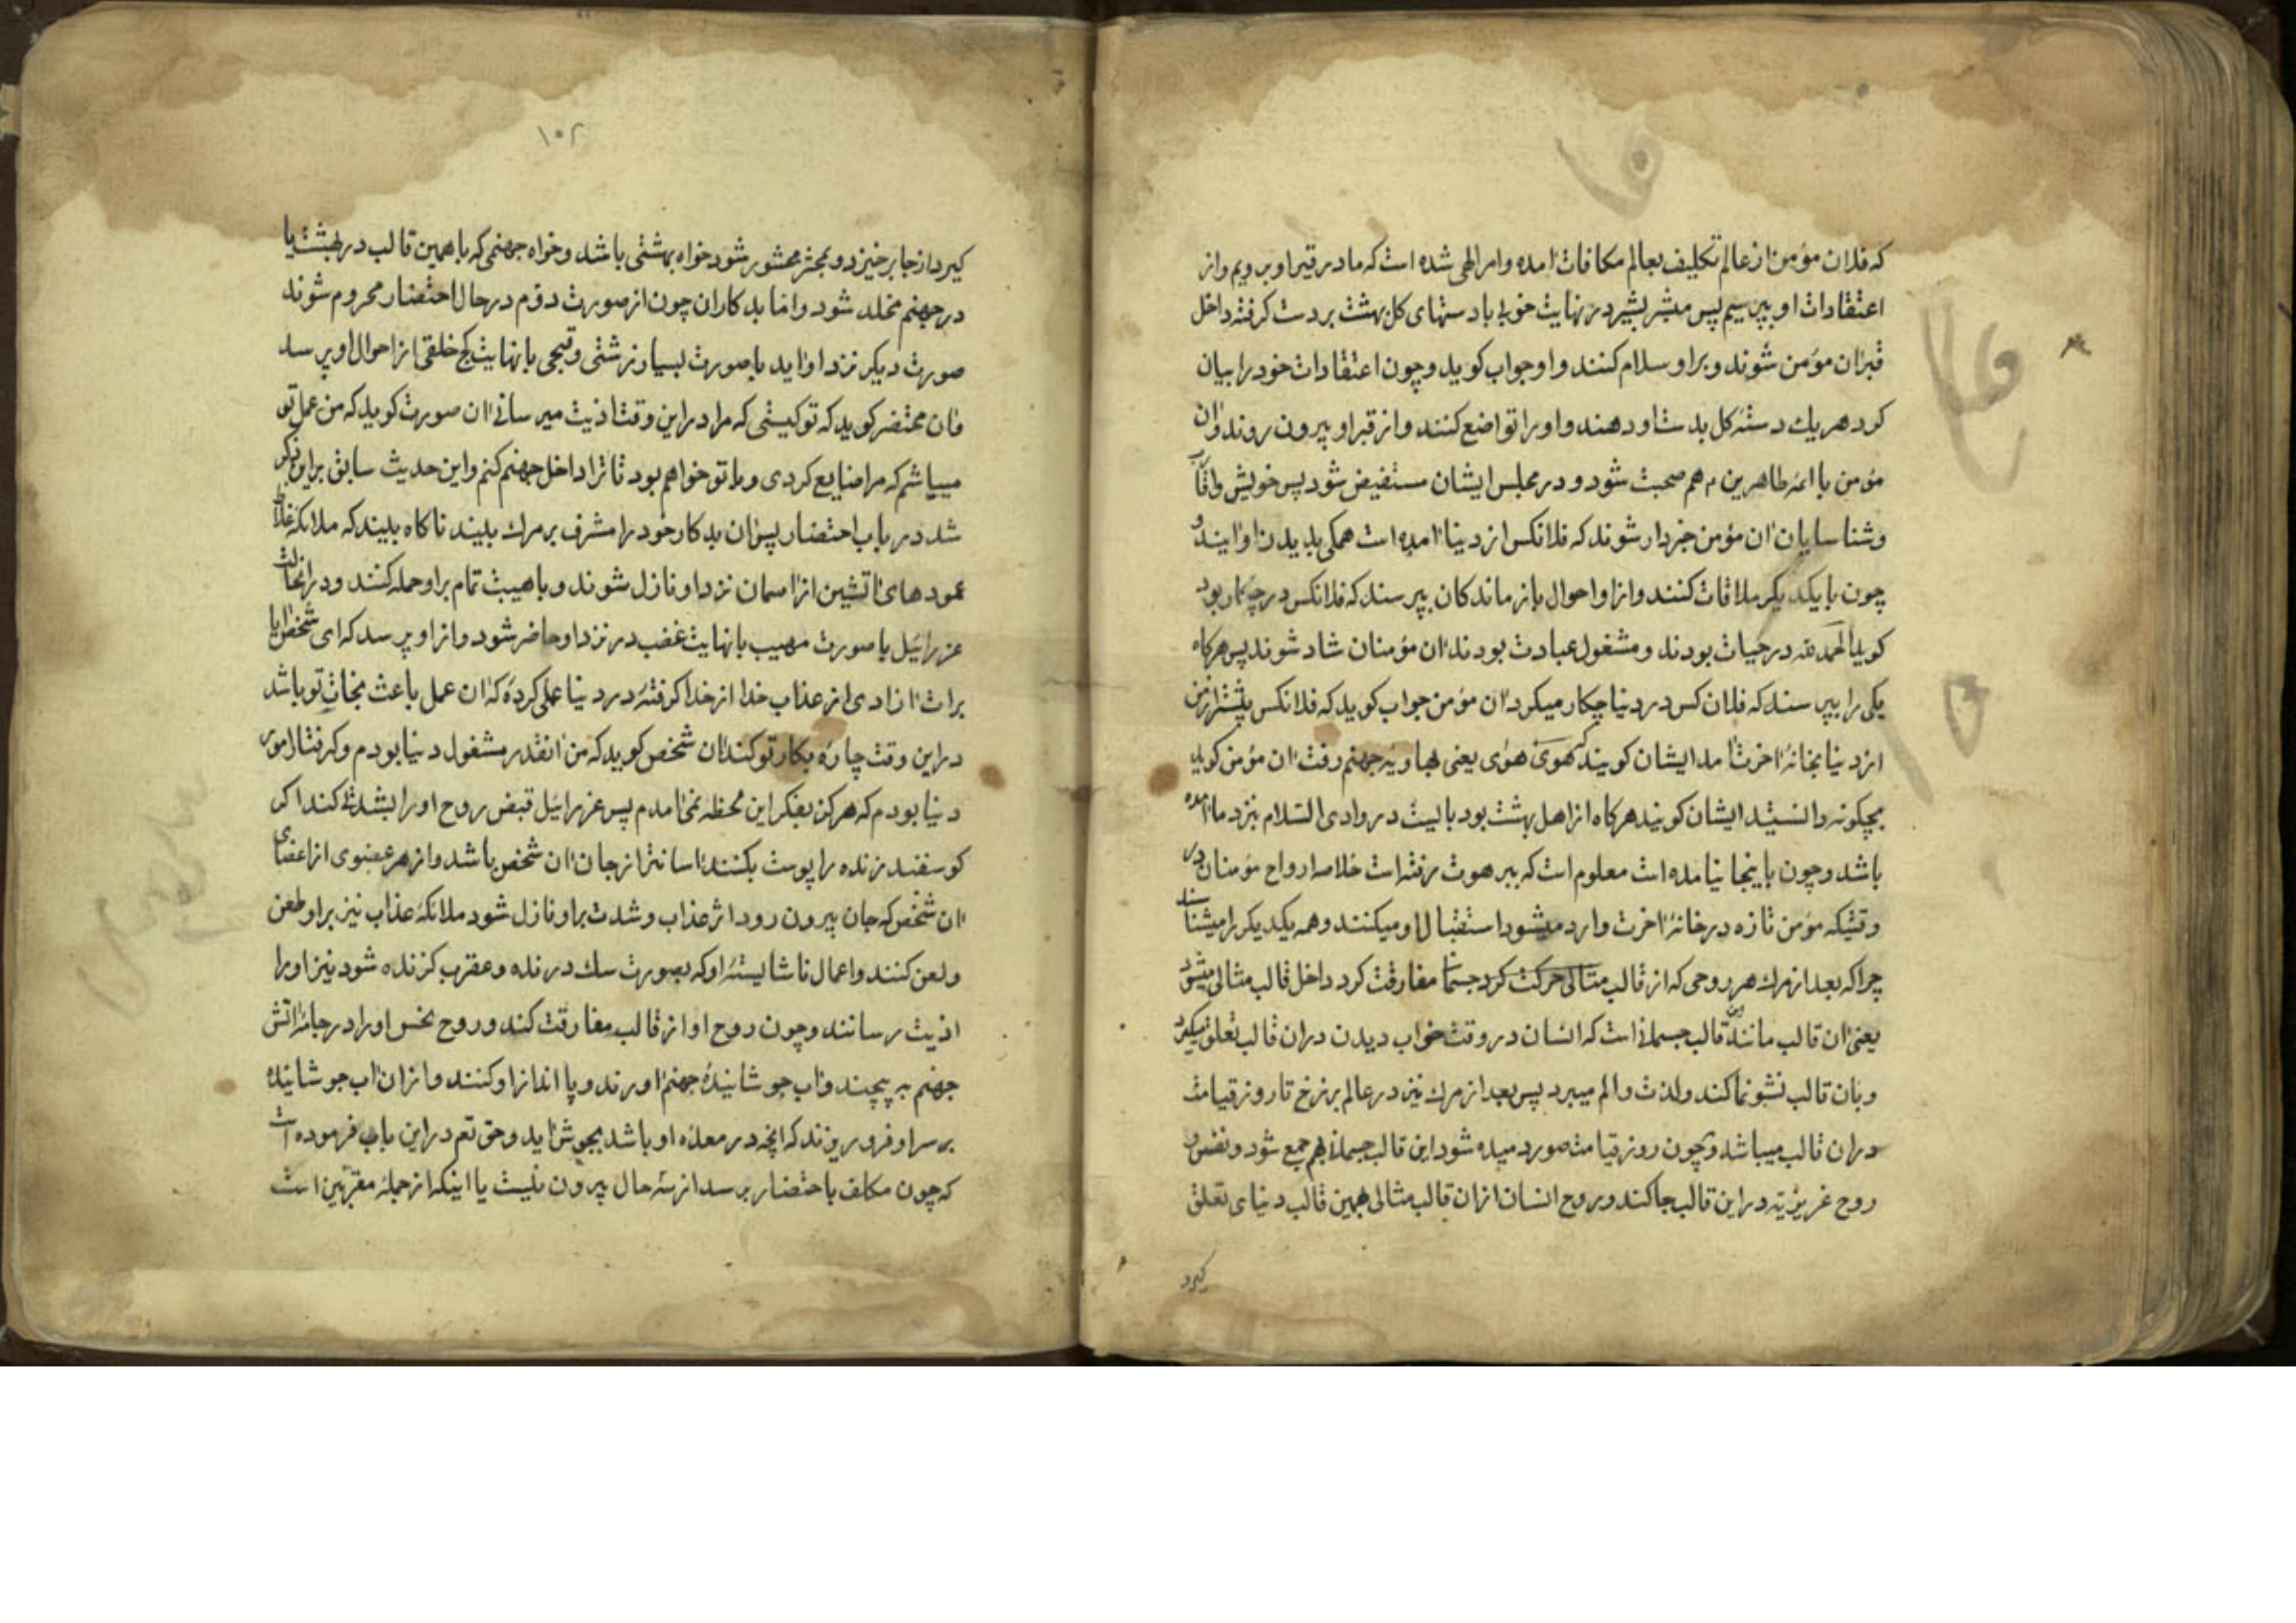 که فلان مؤمن از عالم تکلیف بعالم مکافات امده و امر الهی شده است که ما در قبر او برویم و از
اعتقادات او بپرسیم پس مبشر بشیر در نهایت خوبی با دستهای کل بهشت بر دست کرفته داخل
قبر ان مؤمن شوند و بر او سلام کنند و او جواب کوید و چون اعتقادات خود را بیان
کرد هریك دسته کل بدست او دهند و او را تواضع کنند و از قبر او بیرون روند و ان
مؤمن با ائمه طاهرین م هم صحبت شود و در مجلس ایشان مستفیض شود پس خویش و اقارب
و شناسایان ان مؤمن خبردار شوند که فلانکس از دینا امده است همکی بدیدن او ایند و
چون با یکدیکر ملاقات کنند و از او احوال بازماندکان بپرسند که فلانکس در چکار بود
کوید الحمد لله در حیات بودند و مشغول عبادت بودند ان مؤمنان شاد شوند پس هرکاه
یکی را بپرسند که فلان کس در دینا چکار میکرد ان مؤمن جواب کوید که فلانکس پیشتر از من
از دینا بخانه اخرت امد ایشان کویند که هوی هوی یعنی بهاویه جهنم رفت ان مؤمن کوید
بچکونه دانستید ایشان کویند هرکاه از اهل بهشت بود بایست در وادی السلام بنزد ما امده
باشد و چون باینجا نیامده است معلوم است که ببرهوت رفته است خلاصه ارواح مؤمنان در
وقتیکه مؤمن تازه در خانه اخرت وارد میشود استقبال او میکنند و همه یکدیکر را میشناسند
چرا که بعد از مرك هر روحی که از قالب مثالی حرکت کرد جسمانی مفارقت کرد داخل قالب مثالی میشود
یعنی ان قالب مانند این قالب جسمانی است که انسان در وقت خواب دیدن در ان قالب تعلق میکیرد
و بان قالب نشو نما کند و لذت و الم میبرد پس بعد از مرك نیز در عالم برزخ تا روز قیامت
در ان قالب میباشد و چون روز قیامت صور دمیده شود این قالب جسمانی بهم جمع شود و نفس و
روح غریزیه در این قالب جا کند و روح انسان از ان قالب مثالی بهمین قالب دنیای تعلق
کیرد
۱۰۲
کیرد از جا برخیزد و بمحشر محشور شود خواه بهشتی باشد و خواه جهنمی که با همین قالب در بهشت یا
در جهنم مخلد شود و اما بدکاران چون از صورت دوم در حال احتضار محروم شوند
صورت دیکر نزد او اید با صورت بسیار زشتی و قبحی با نهایت کج خلقی از احوال او پرسد
و ان محتضر کوید که تو کیستی که مرا در این وقت اذیت میرسانی ان صورت کوید که من عمل تو
میباشم که مرا ضایع کردی و با تو خواهم بود تا ترا داخل جهنم کنم و این حدیث سابق بر این ذکر
شد در باب احتضار پس ان بدکار خود را مشرف بر مرك بیند ناکاه بیند که ملائکه غلاظ
عمودهای اتشین از اسمان نزد او نازل شوند و با هیبت تمام بر او حمله کنند و در انحالت
عزرائیل با صورت مهیب با نهایت غضب در نزد او حاضر شود و از او پرسد که ای شخص ایا
برات ازادی از عذاب خدا از خدا کرفته در دنیا عملی کرده که ان عمل باعث نجات تو باشد
در این وقت چاره بکار تو کند ان شخص کوید که من انقدر مشغول دنیا بودم و کرفتار امور
دنیا بودم که هرکز بفکر این محظه نمی‌امدم پس عزرائیل قبض روح او را بشدتی کند اکر
کوسفند زنده را پوست بکنند اسانتر از جان ان شخص باشد و از هر عضوی از اعضای
ان شخص که جان بیرون رود اثر عذاب و شدت بر او نازل شود ملائکه عذاب نیز بر او طعن
و لعن کنند و اعمال ناشایسته او که بصورت سك درنده و عقرب کزنده شود نیز او را
اذیت رسانند و چون روح او از قالب مفارقت کند و روح نحس او را در جامه اتش
جهنم به پیچند و اب جوشانیده جهنم اورند و پا انداز او کنند و از ان اب جوشانیده
بر سر او فرو ریزند که انچه در معده او باشد بجوش اید و حق تعم در این باب فرموده است
که چون مکلف باحتضار برسد از سه حال بیرون نیست یا اینکه از جمله مقربین است